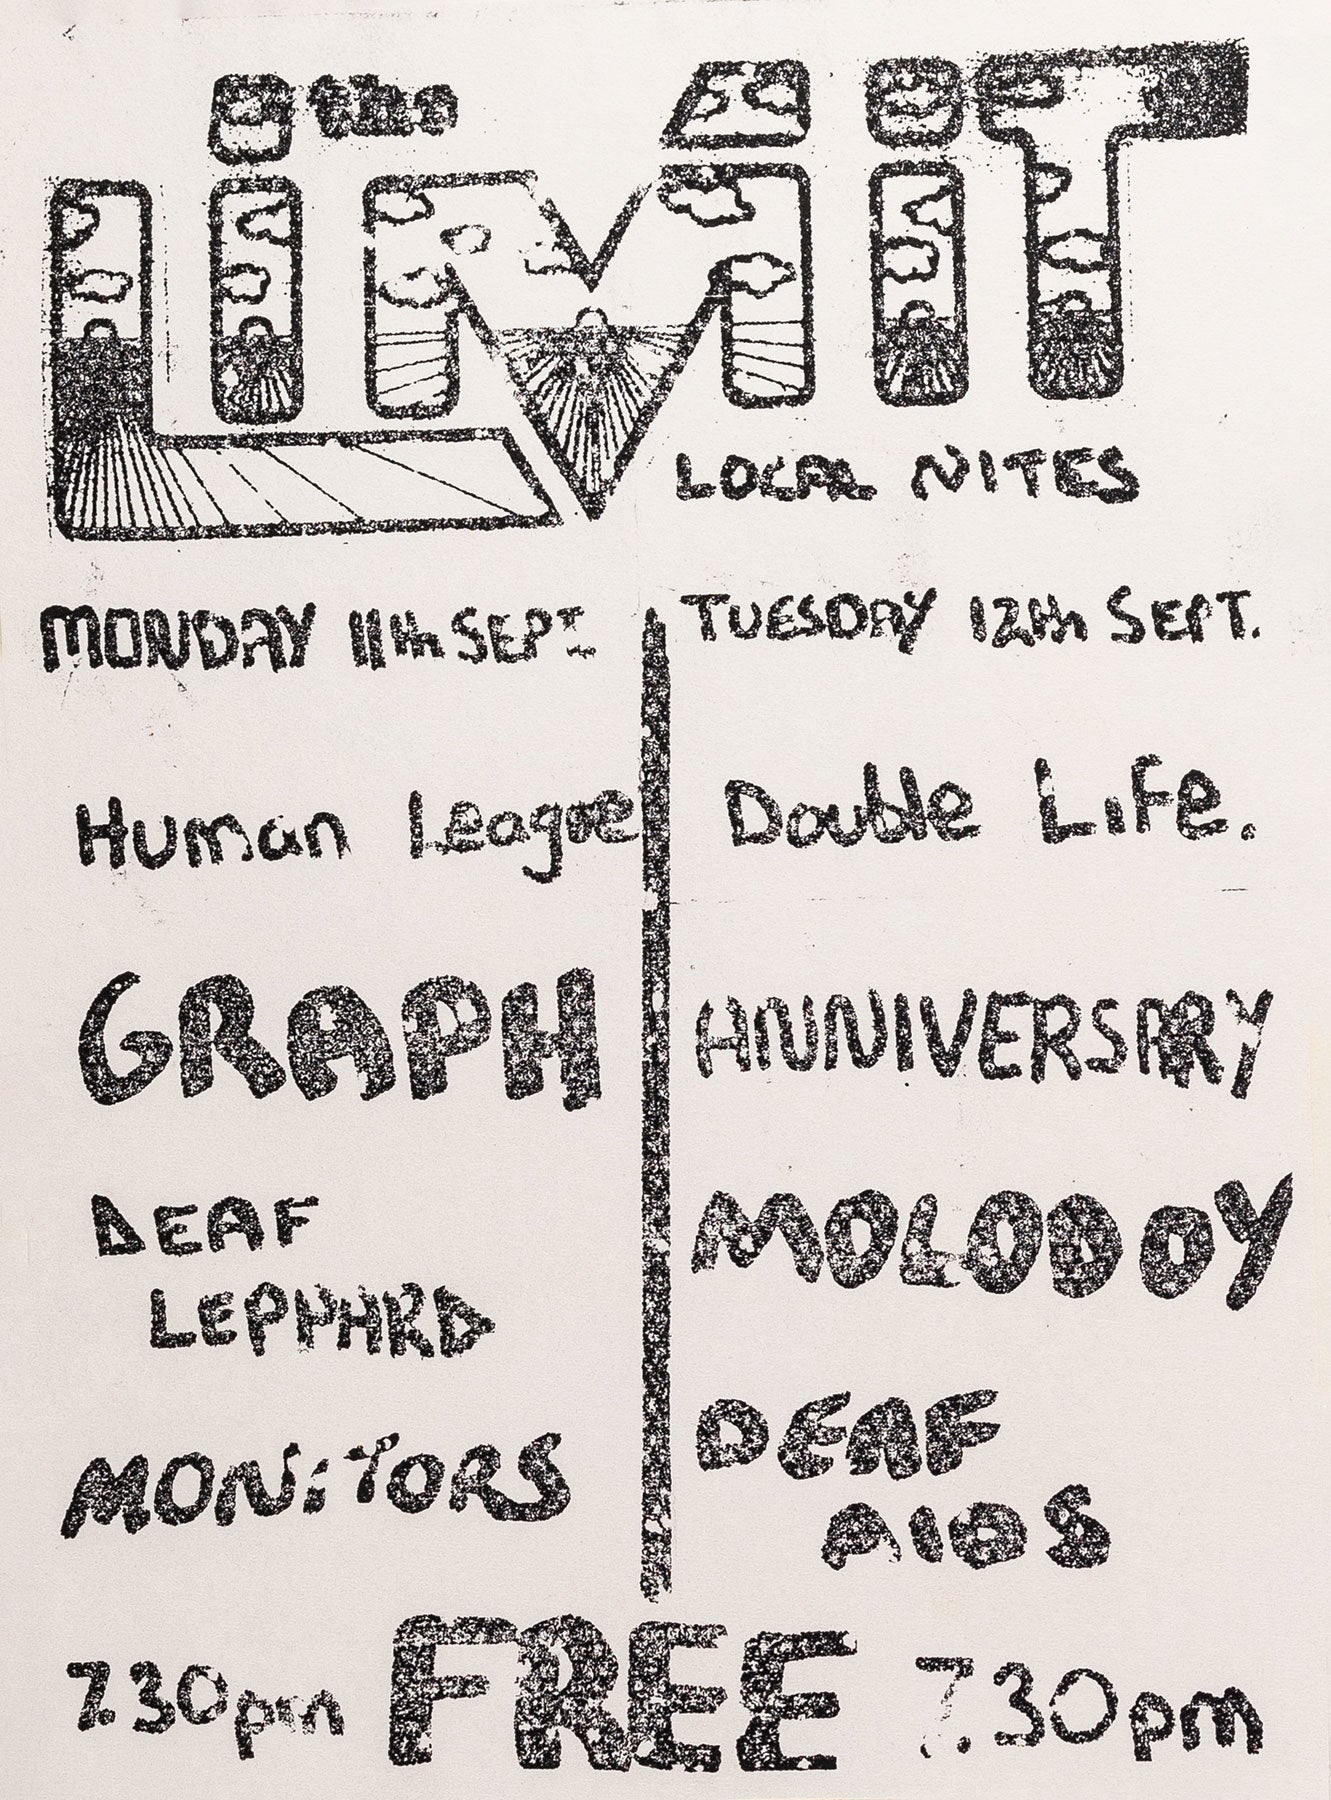 the
LiMiT
LOCAL NITES
MONDAY 11th SEPT.
Human League
GRAPH
DEAF
LEPPHARD
MONiTORS
7.30pm
TUESDAY 12th SEPT.
Double Life.
ANNIVERSARY
MOLODOY
DEAF
AIDS
FREE
7.30pm